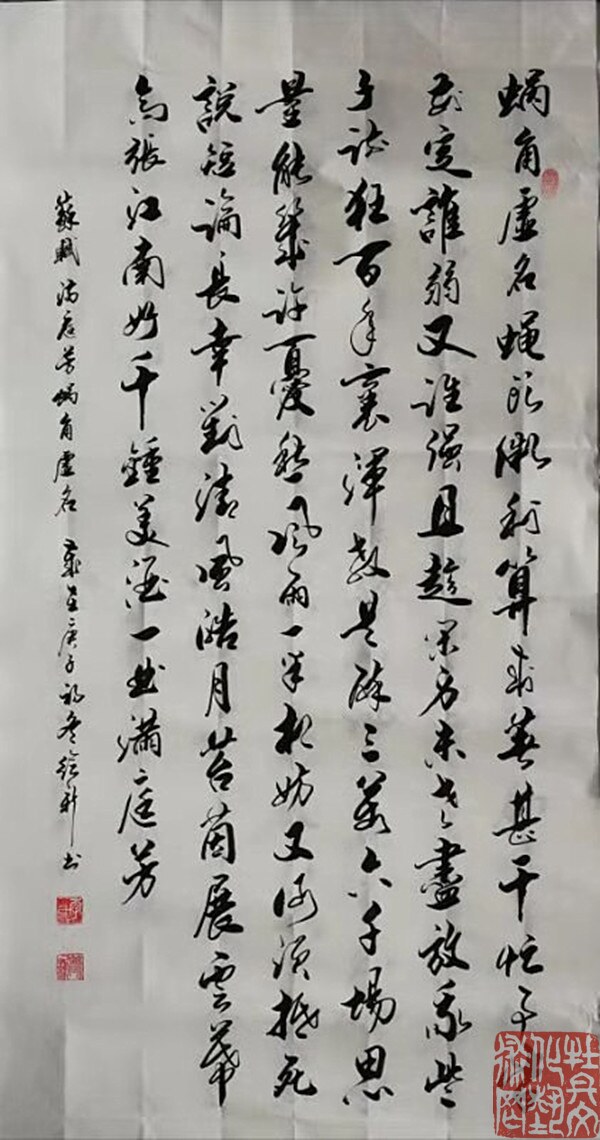 蝸角虛名蝇头微利算来著甚干忙事皆
前定誰弱又谁强且趁闲身未老盡放我些
子疏狂百年裏渾教是醉三萬六千場思
量能幾许憂愁风雨一半相妨又何须抵死
說短論長幸對清風皓月苔茵展雲幕
高張江南好千鍾美酒一曲滿庭芳
蘇軾满庭芳蝸角虛名 歲在庚子初冬书